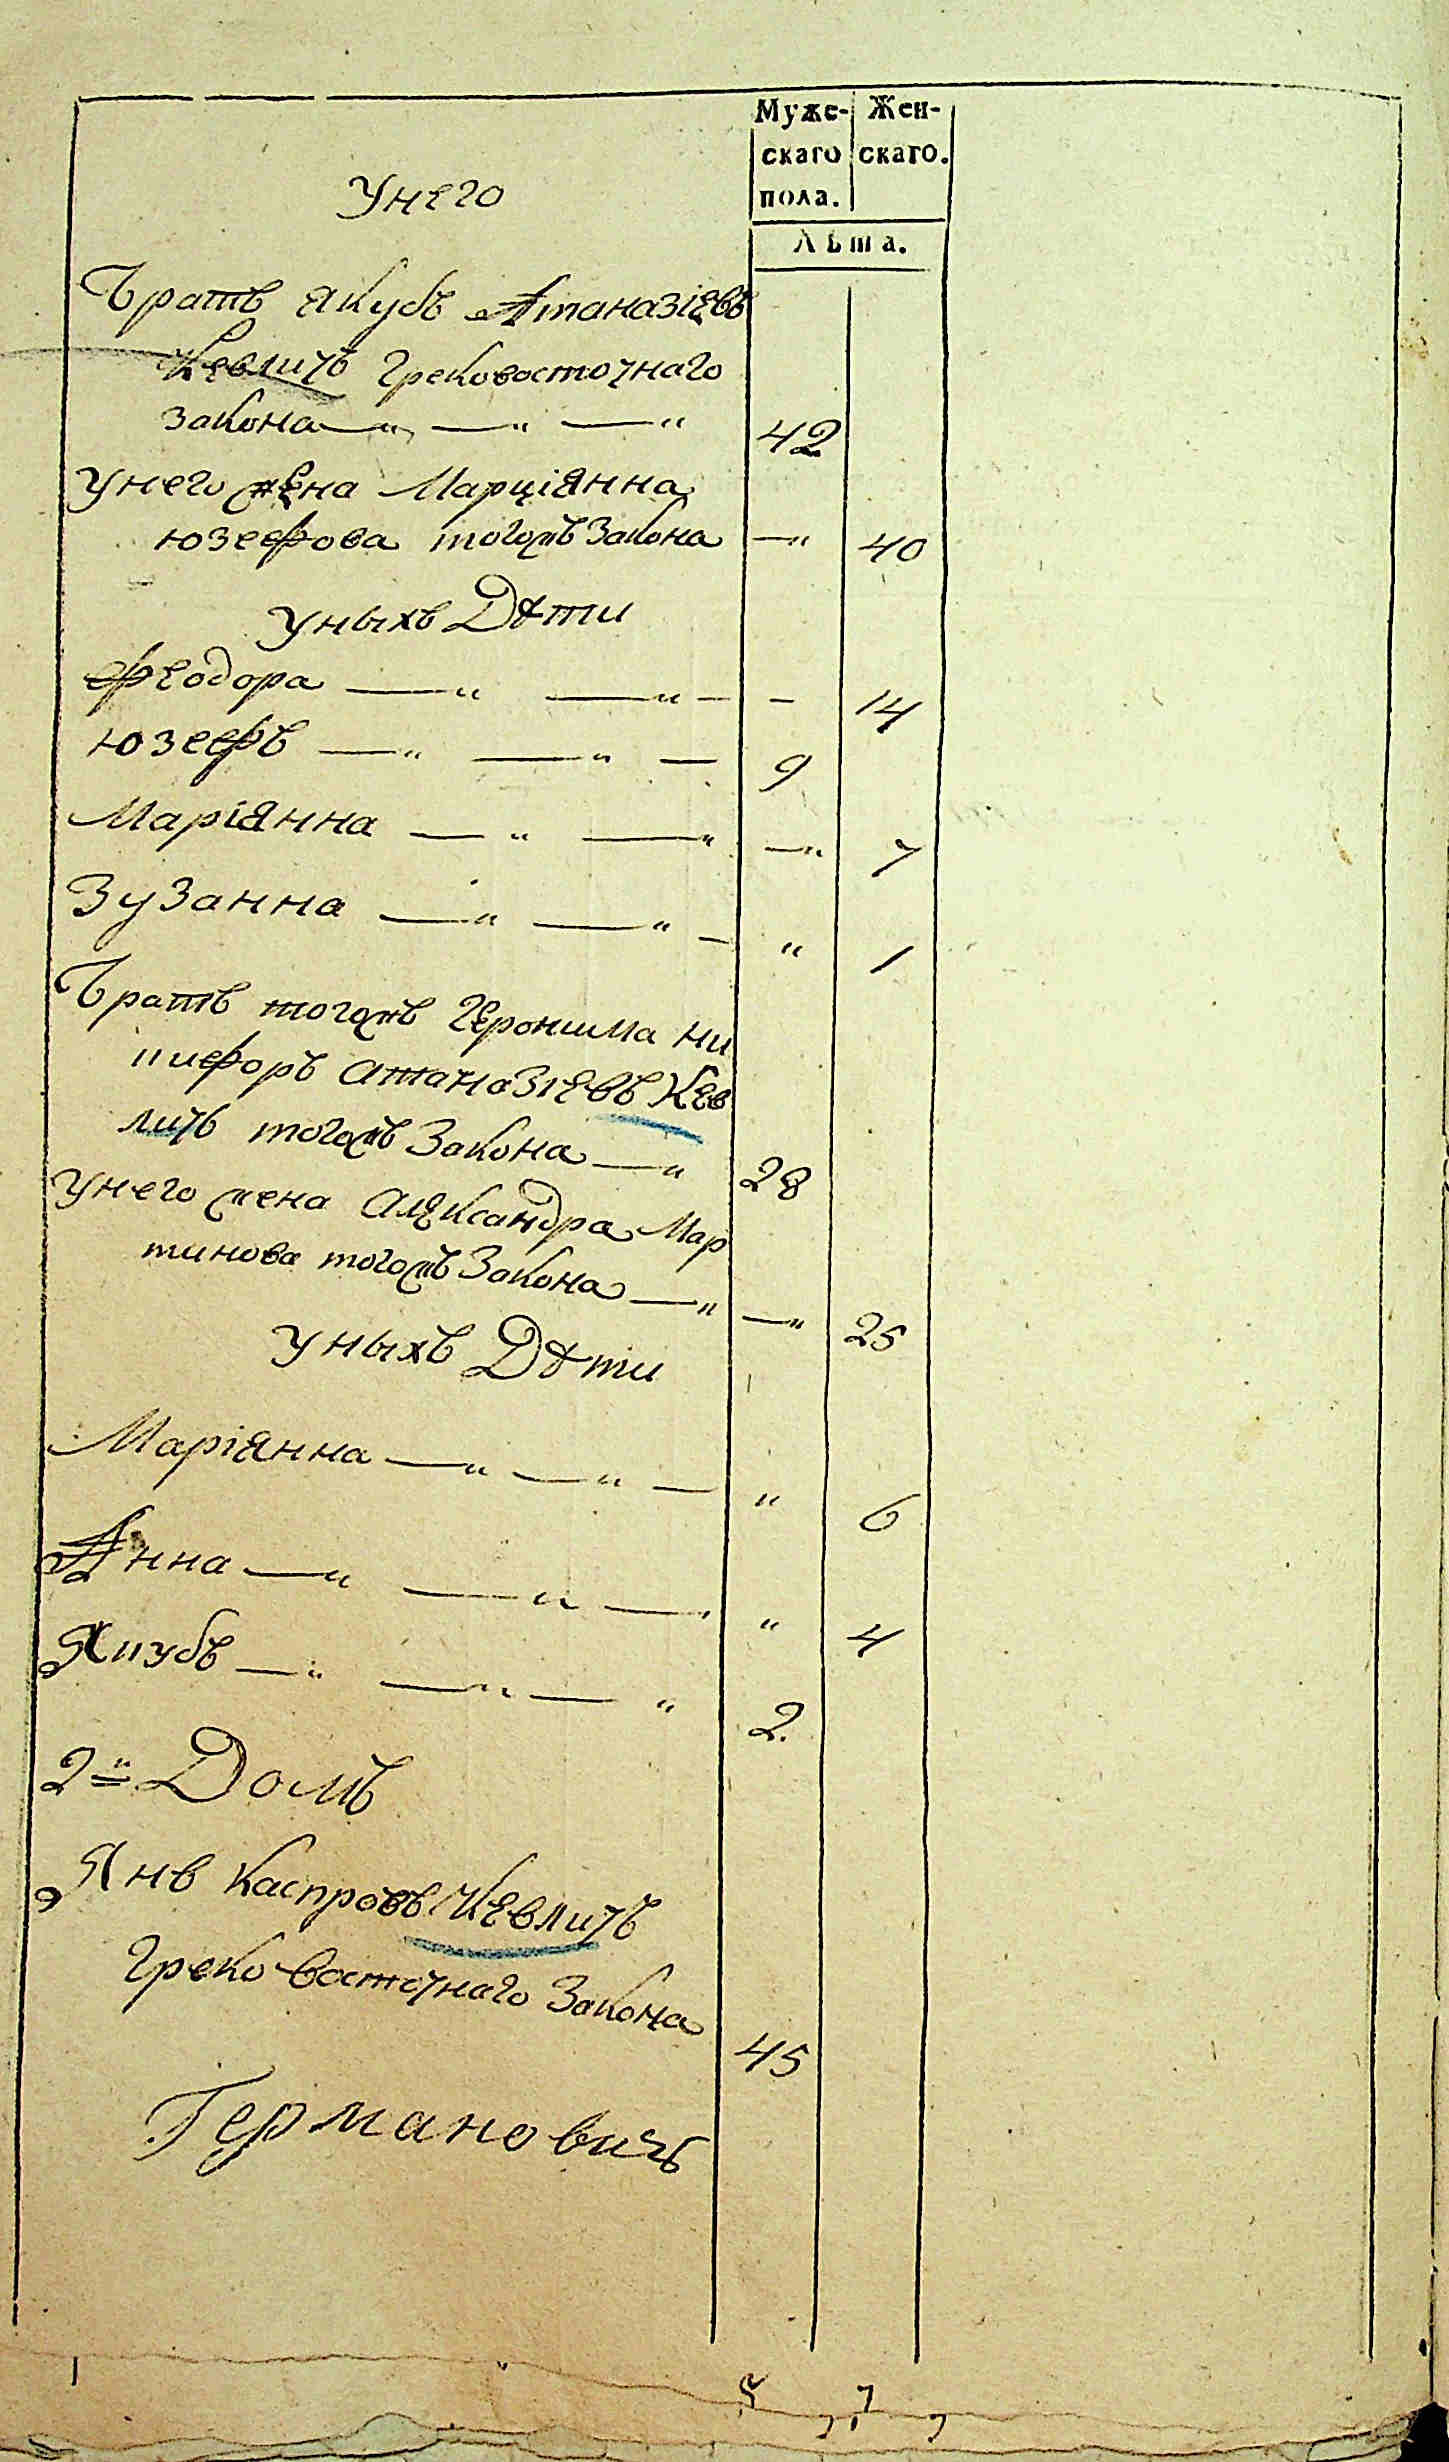 Муже- Жен-
скаго скаго.
пола.
Лѣта.
Унего
Братъ Якубъ Атаназіевъ
Кевличъ Грековосточнаго
закона —„ —„ —„ 42
Унего жена Марціянна
Юзефова тогожъ Закона —„ 40
Уныхъ Дѣти
Феодора —„ —„ — — 14
Юзефъ —„ —„ — 9
Маріянна —„ —„ —„ 7
Зузанна —„ —„ — „ 1
Братъ тогожъ Героима Ни
кифоръ Атаназіевъ Кев
личъ тогожъ Закона —„ 28
Унего жена Александра Мар
тинова тогожъ Закона —„ —„ 25
Уныхъ Дѣти
Маріянна —„ —„ — „ 6
Анна —„ —„ — „ 4
Якубъ —„ —„ — „ 2.
2й Домъ
Янъ Каспровъ Кевличъ
Греко восточнаго Закона 45
Германовичъ